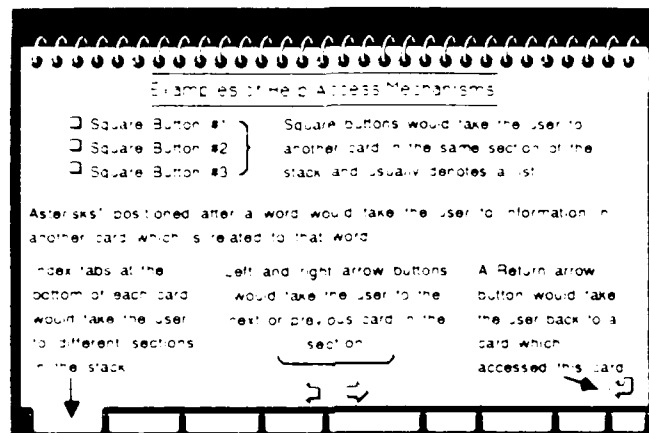 Examples of Help Access Mechanisms
Square Button #1
Square Button #2
Square Button #3
Square buttons would take the user to
another card in the same section of the
stack and usually denotes a list
Asterisks* positioned after a word would take the user to information in
another card which is related to that word
Index tabs at the
bottom of each card
would take the user
to different sections
in the stack
Left and right arrow buttons
would take the user to the
next or previous card in the
section
A Return arrow
button would take
the user back to a
card which
accessed this card